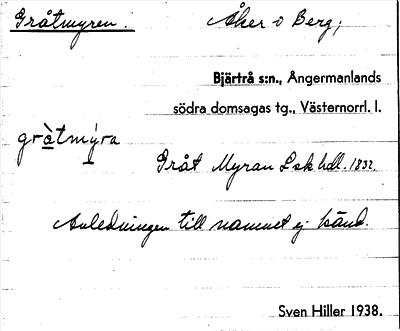 Gråtmyren. Åker o Berg;
Bjärtrå s:n., Ångermanlands
södra domsagas tg., Västernorrl. l.
gràtmýra
Gråt Myran Lsk hdl. 1832.
Anledningen till namnet ej känd.
Sven Hiller 1938.